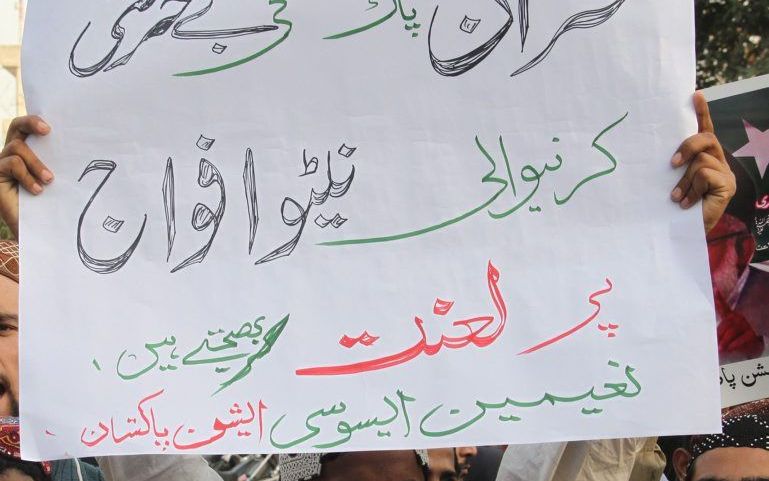 قرآن پاک کی بے حرمتی
کرنیوالی نیٹو افواج
پر لعنت بھیجتے ہیں ۔
نعیمین ایسوسی ایشن پاکستان ۔